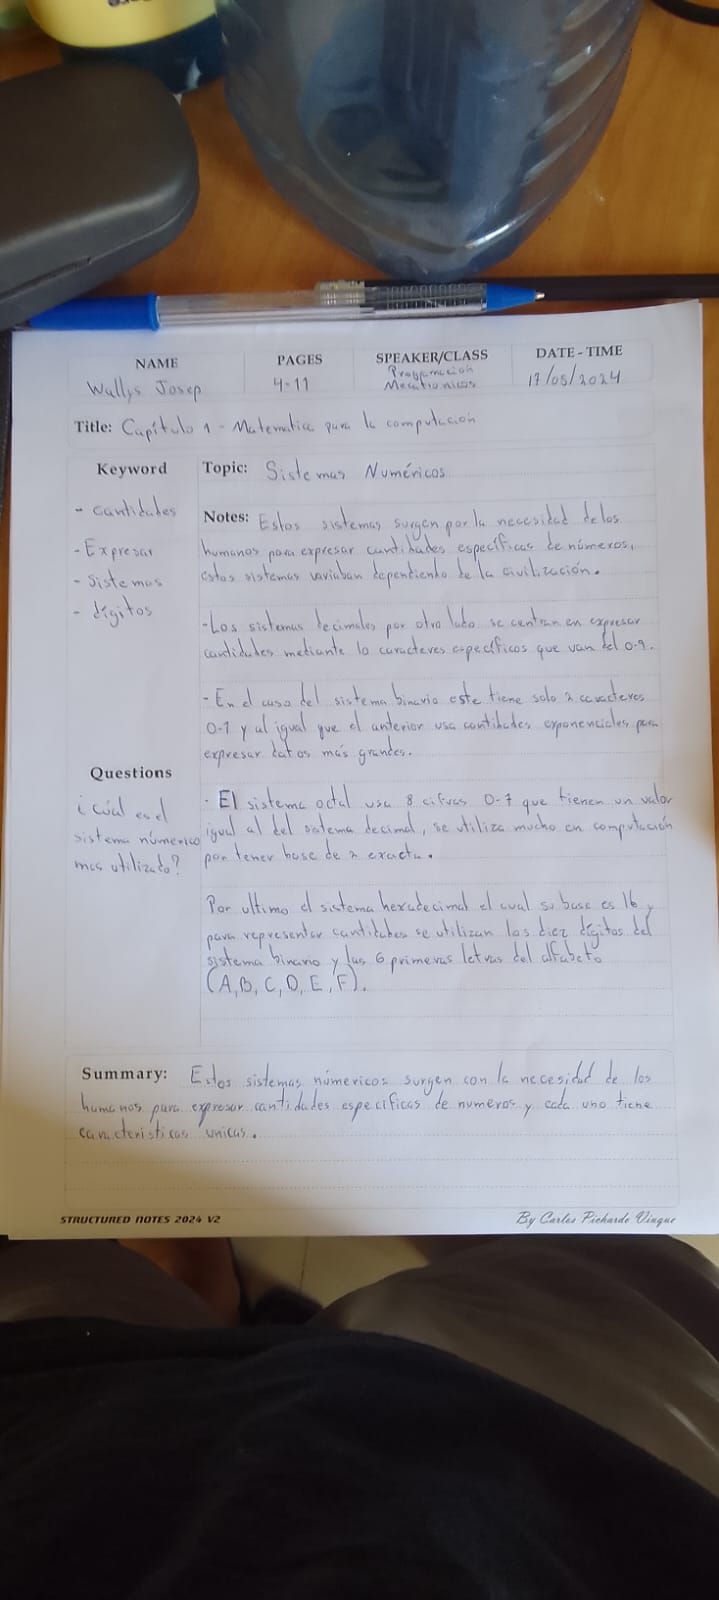 NAME PAGES SPEAKER/CLASS DATE - TIME
Wallys Josep 4-11 Programación Mecatronicos 17/05/2024
Title: Capítulo 1 - Matematica para la computación
Keyword
- cantidades
- Expresar
- sistemas
- dígitos
Topic: Sistemas Numéricos
Notes: Estos sistemas surgen por la necesidad de los
humanos para expresar cantidades específicas de números,
estos sistemas variaban dependiendo de la civilización.
- Los sistemas decimales por otro lado se centran en expresar
cantidades mediante 10 caracteres específicos que van del 0-9.
- En el caso del sistema binario este tiene solo 2 caracteres
0-1 y al igual que el anterior usa cantidades exponenciales para
expresar datos más grandes.
Questions
¿Cúal es el
sistema númerico
mas utilizado?
- El sistema octal usa 8 cifras 0-7 que tienen un valor
igual al del sistema decimal, se utiliza mucho en computación
por tener base de 2 exacta.
Por ultimo el sistema hexadecimal el cual su base es 16 y
para representar cantidades se utilizan los diez dígitos del
sistema binario y las 6 primeras letras del alfabeto
(A,B,C,D,E,F).
Summary: Estos sistemas númericos surgen con la necesidad de los
humanos para expresar cantidades especificas de numeros y cada uno tiene
caracteristicas unicas.
STRUCTURED NOTES 2024 V2 By Carlos Pichardo Viuque